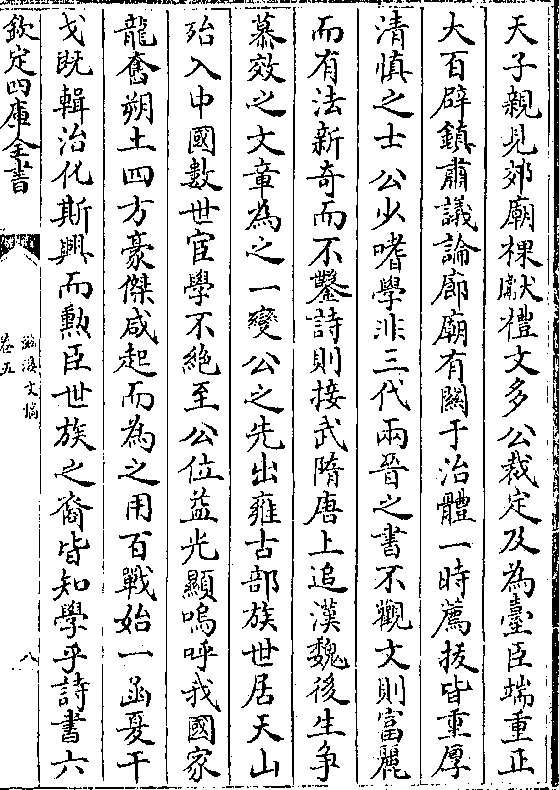 天子親見郊廟祼獻禮文多公裁定及為臺臣端重正
大百辟鎮肅議論廊廟有關于治體一時薦拔皆重厚
清慎之士公少嗜學非三代兩晉之書不觀文則富麗
而有法新奇而不鑿詩則接武隋唐上追漢魏後生争
慕效之文章為之一變公之先出雍古部族世居天山
殆入中國數世宦學不絶至公位益光顯嗚呼我國家
龍奮朔土四方豪傑咸起而為之用百戰始一函夏干
戈既輯治化斯興而勲臣世族之裔皆知學乎詩書六
欽定四庫全書
滋溪文稿
卷五
八